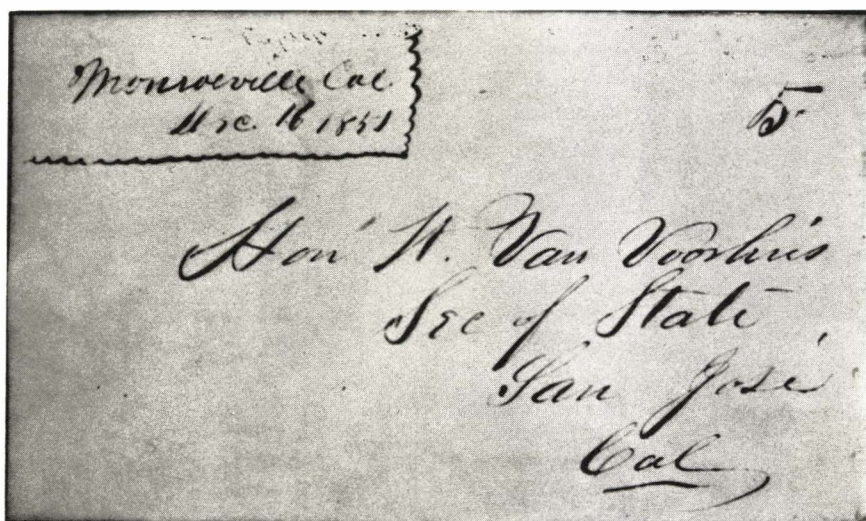 Monroeville Cal.
Dec. 16 1851
5
Hon' W. Van Voorhis
Sec of State
San José
Cal